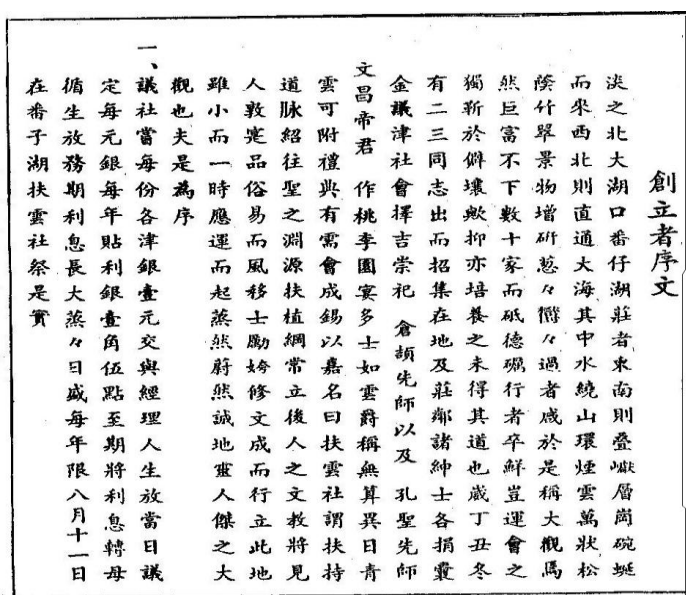 創立者序文
淡之北大湖口番仔湖莊者東南則疊巘層崗碗蜒
而來西北則直通大海其中水繞山環煙雲萬狀松
陰竹翠景物增研葱々欝々過者咸於是稱大觀焉
然巨富不下數十家而砥德礪行者卒鮮豈運會之
獨靳於僻壤歟抑亦培養之未得其道也歲丁丑冬
有二三同志出而招集在地及莊鄰諸紳士各捐囊
金議津社會擇吉崇祀 倉頡先師以及 孔聖先師
文昌帝君 作桃李園宴多士如雲爵稱無算異日青
雲可附禮典有需會成錫以嘉名曰扶雲社謂扶持
道脉紹往聖之淵源扶植綱常立後人之文教將見
人敦寔品俗易而風移士勵姱修文成而行立此地
雖小而一時應運而起蒸然蔚然誠地靈人傑之大
觀也夫是為序
一、議社當每份各津銀壹元交與經理人生放當日議
定每元銀每年貼利銀壹角伍點至期將利息轉母
循生放務期利息長大蒸々日盛每年限八月十一日
在番子湖扶雲社祭是實